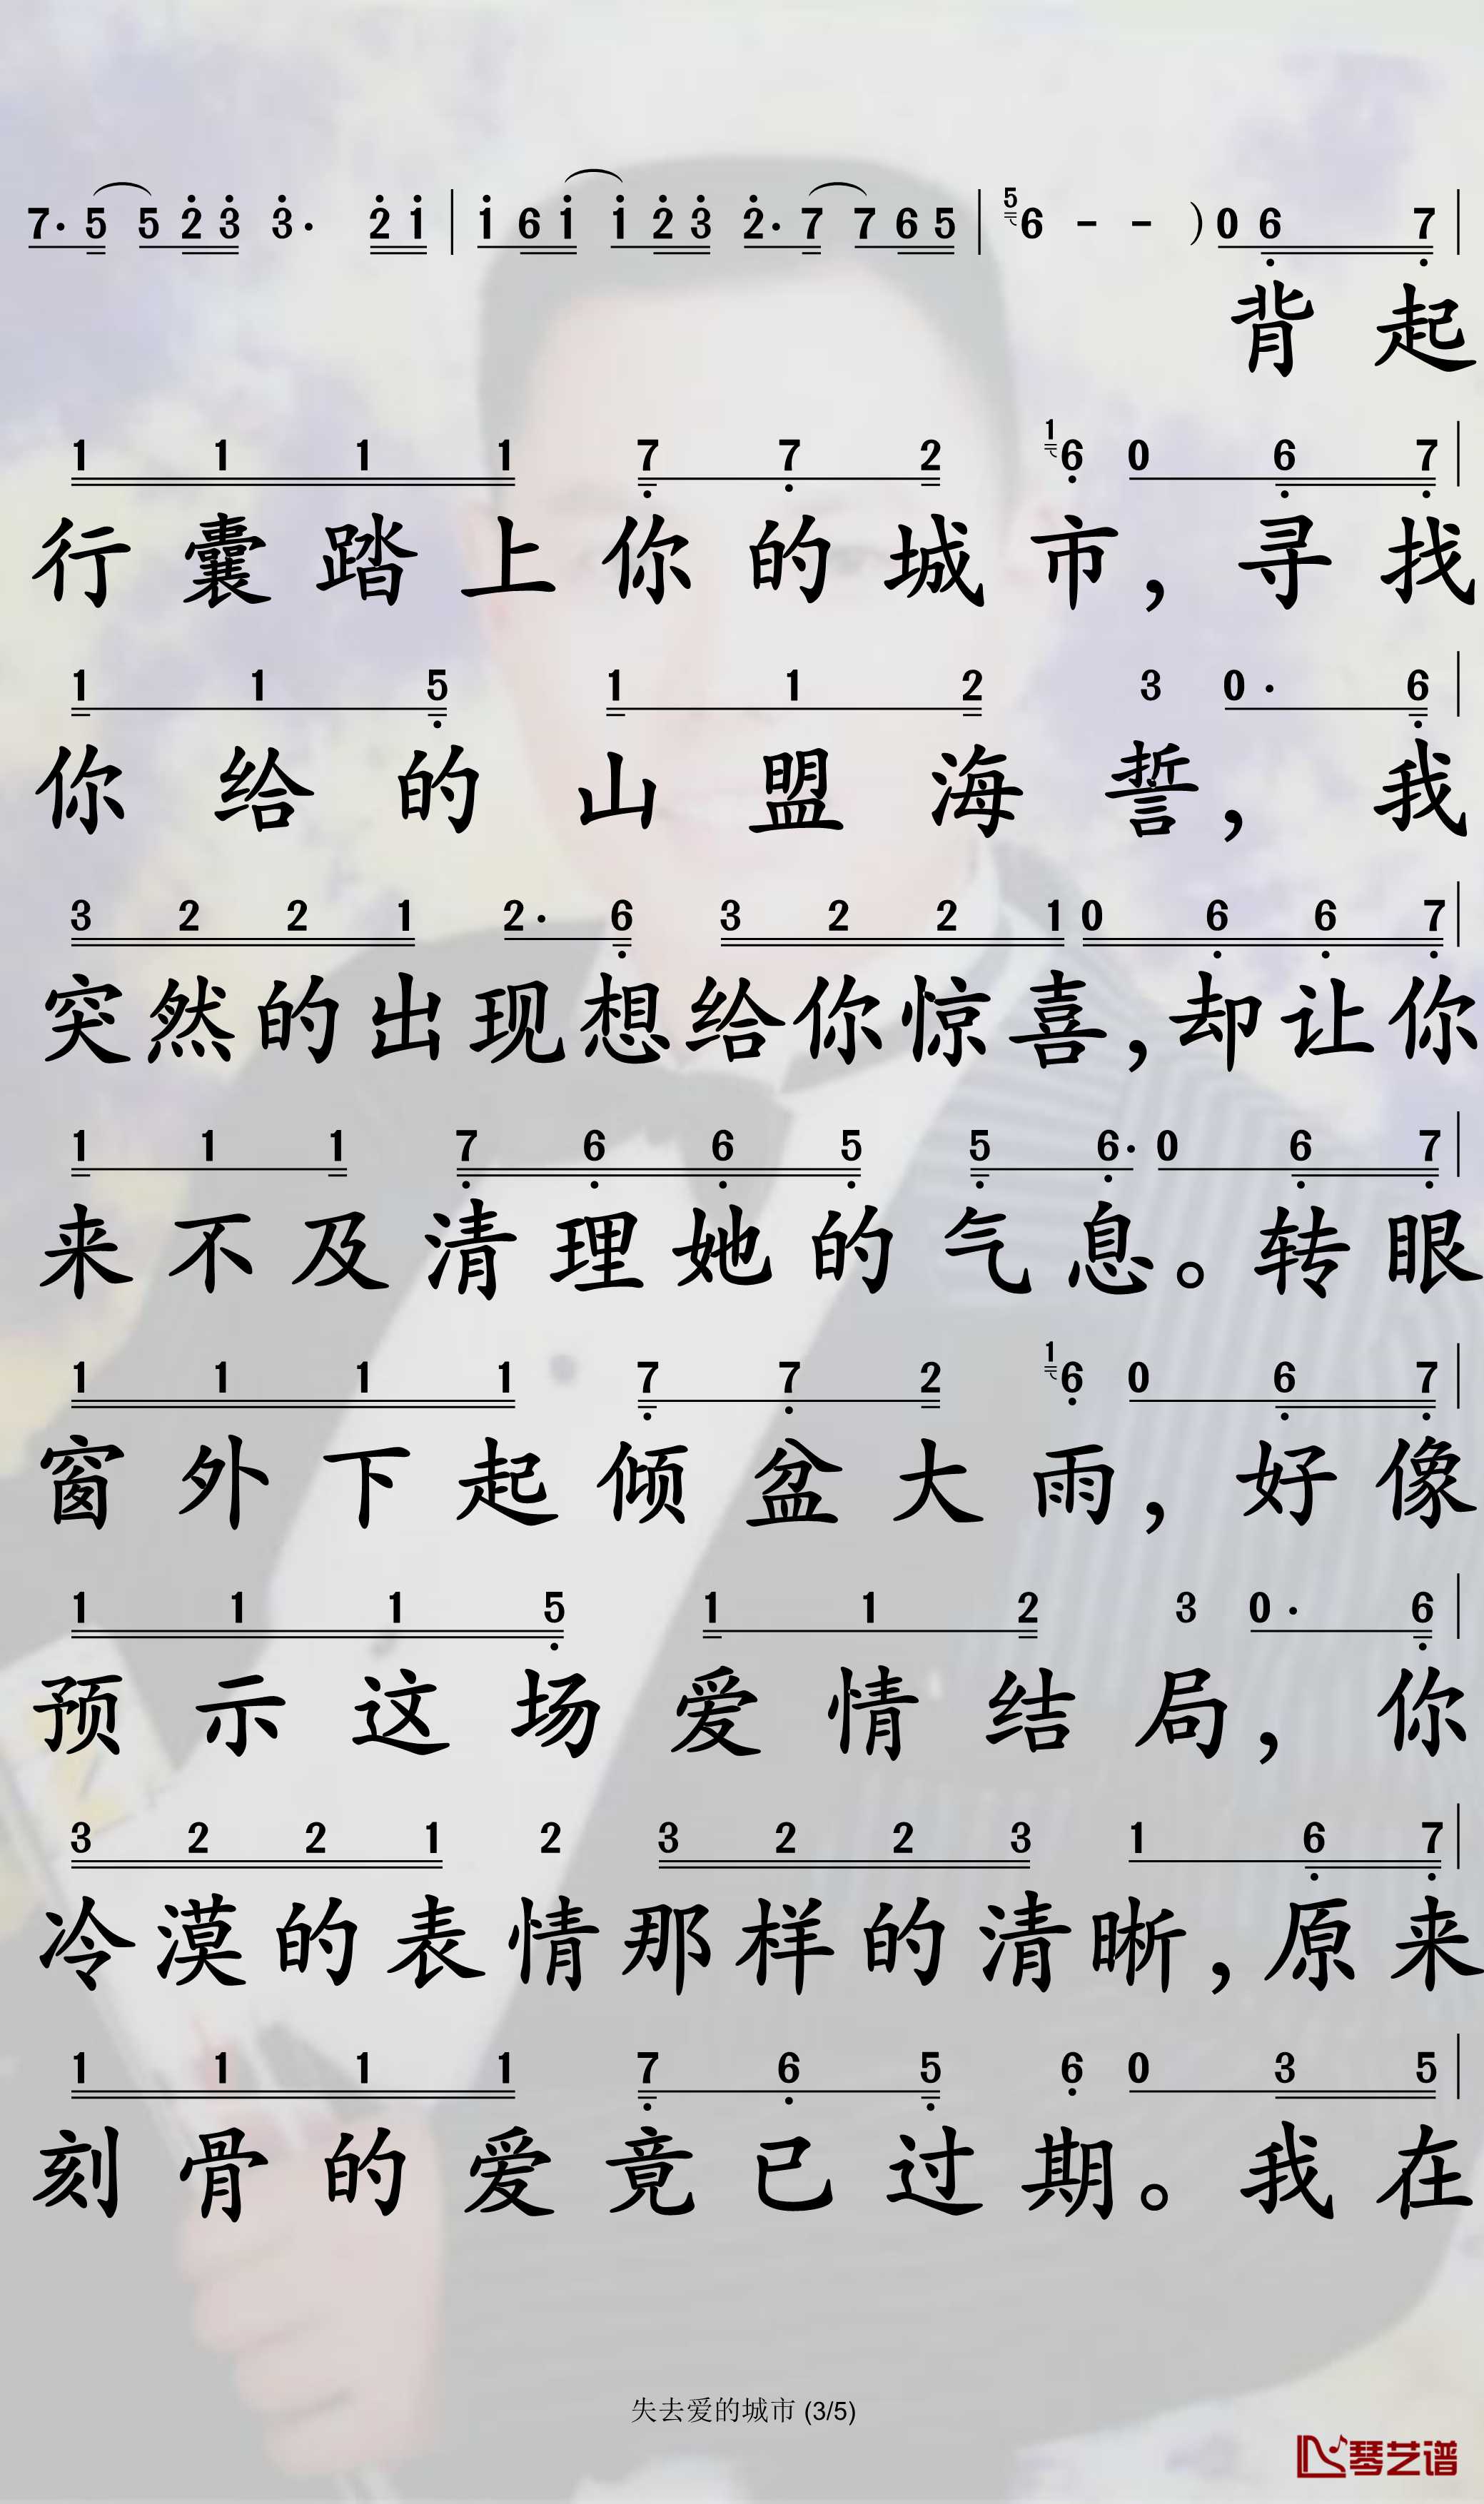 7· 5 5 2 3 3· 2 1 | 1 6 1 1 2 3 2· 7 7 6 5 | 5 6 - - ) 0 6 7 |
背起
1 1 1 1 7 7 2 1 6 0 6 7 |
行囊踏上你的城市，寻找
1 1 5 1 1 2 3 0· 6 |
你给的山盟海誓，我
3 2 2 1 2· 6 3 2 2 1 0 6 6 7 |
突然的出现想给你惊喜，却让你
1 1 1 7 6 6 5 5 6· 0 6 7 |
来不及清理她的气息。转眼
1 1 1 1 7 7 2 1 6 0 6 7 |
窗外下起倾盆大雨，好像
1 1 1 5 1 1 2 3 0· 6 |
预示这场爱情结局，你
3 2 2 1 2 3 2 2 3 1 6 7 |
冷漠的表情那样的清晰，原来
1 1 1 1 7 6 5 6 0 3 5 |
刻骨的爱竟已过期。我在
失去爱的城市 (3/5)
琴艺谱